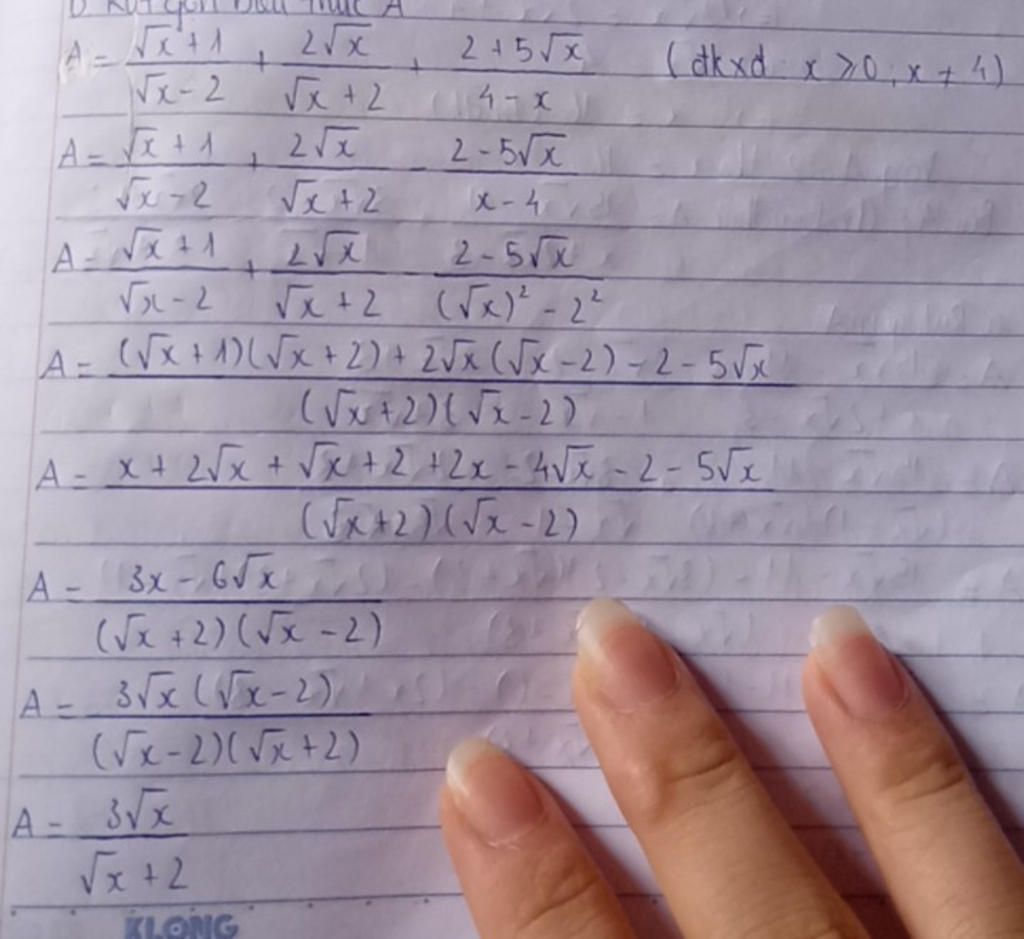 b. Rút gọn biểu thức A
A = (√x + 1)/(√x - 2) + (2√x)/(√x + 2) + (2 + 5√x)/(4 - x) (đkxđ x ⩾ 0, x ≠ 4)
A = (√x + 1)/(√x - 2) + (2√x)/(√x + 2) - (2 - 5√x)/(x - 4)
A = (√x + 1)/(√x - 2) + (2√x)/(√x + 2) - (2 - 5√x)/((√x)² - 2²)
A = ((√x + 1)(√x + 2) + 2√x(√x - 2) - 2 - 5√x)/((√x + 2)(√x - 2))
A = (x + 2√x + √x + 2 + 2x - 4√x - 2 - 5√x)/((√x + 2)(√x - 2))
A = (3x - 6√x)/((√x + 2)(√x - 2))
A = (3√x(√x - 2))/((√x - 2)(√x + 2))
A = (3√x)/(√x + 2)
KLONG